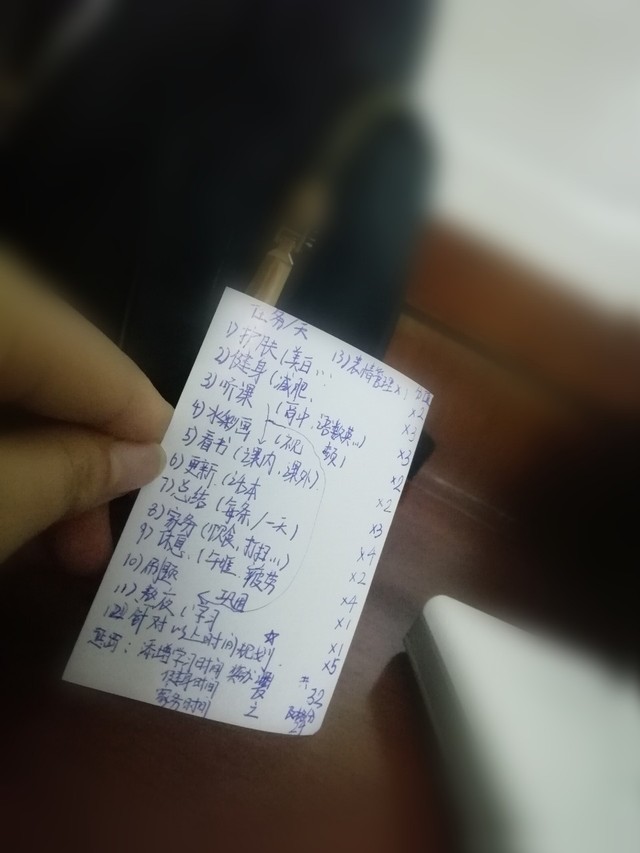 任务/天
1) 护肤 (美白...
13) 表情管理×1
2) 健身 (减肥、 ×2
3) 听课 (高中、语数英...) ×3
4) 水彩画 ×3
5) 看书 (课内、课外) ×2
6) 更新 (话本 ×2
7) 总结 (每条/一天) ×3
8) 家务 (饮食、打扫...) ×4
9) 休息 ( 疲劳 ×2
10) 刷题 巩固 ×4
11) 熬夜 (学习 ×1
12) 针对以上时间规划 ×1
×5
惩罚: 添增学习时间 共 32
健身时间
家务时间 之 及格分 24